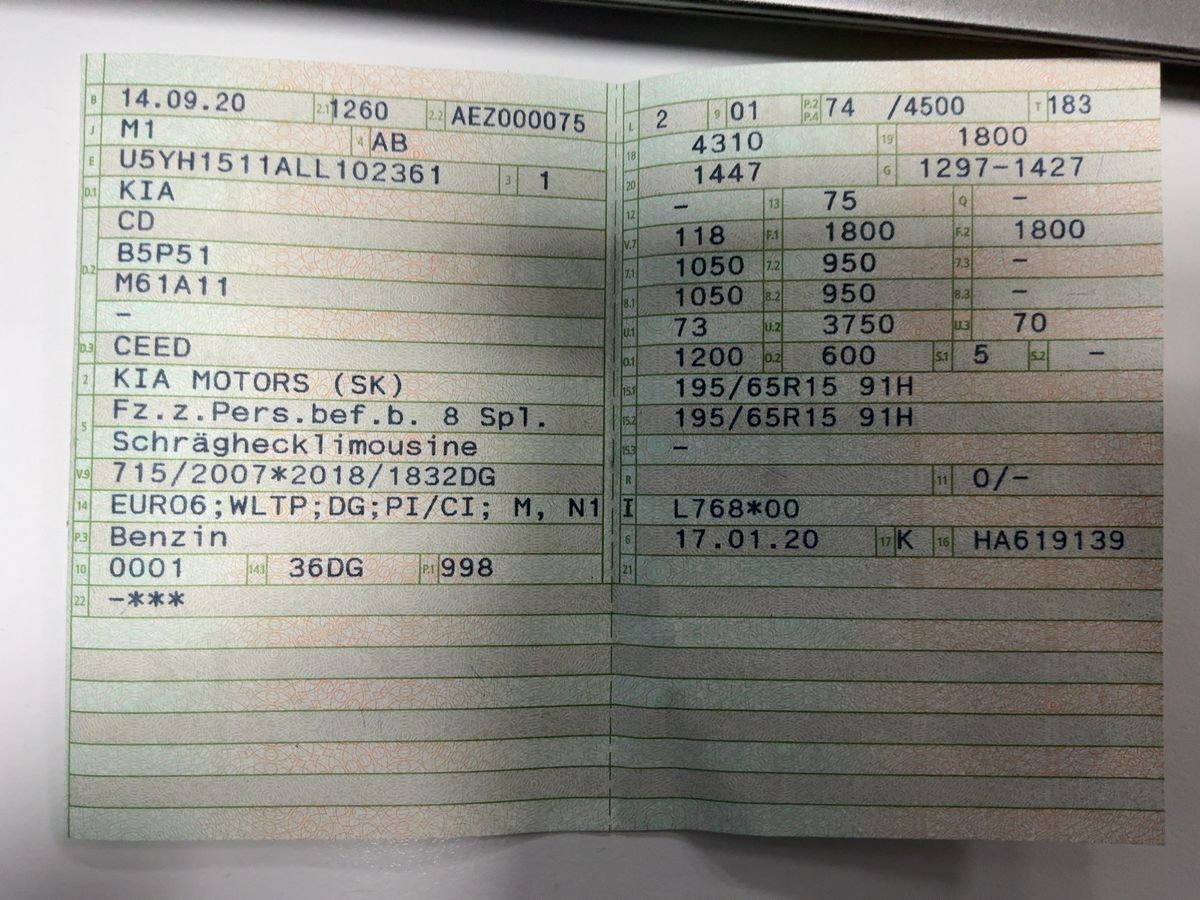 B 14.09.20 2.1 1260 2.2 AEZ000075
J M1 4 AB
E U5YH1511ALL102361 3 1
D.1 KIA
CD
D.2 B5P51
M61A11
–
D.3 CEED
2 KIA MOTORS (SK)
5 Fz.z.Pers.bef.b. 8 Spl.
Schräghecklimousine
V.9 715/2007*2018/1832DG
14 EURO6;WLTP;DG;PI/CI; M, N1 I
P.3 Benzin
10 0001 14.1 36DG P.1 998
22 –***
L 2 9 01 P.2 P.4 74 /4500 T 183
18 4310 19 1800
20 1447 G 1297–1427
12 – 13 75 Q –
V.7 118 F.1 1800 F.2 1800
7.1 1050 7.2 950 7.3 –
8.1 1050 8.2 950 8.3 –
U.1 73 U.2 3750 U.3 70
O.1 1200 O.2 600 S.1 5 S.2 –
15.1 195/65R15 91H
15.2 195/65R15 91H
15.3 –
R 11 0/–
L768*00
6 17.01.20 17 K 16 HA619139
21